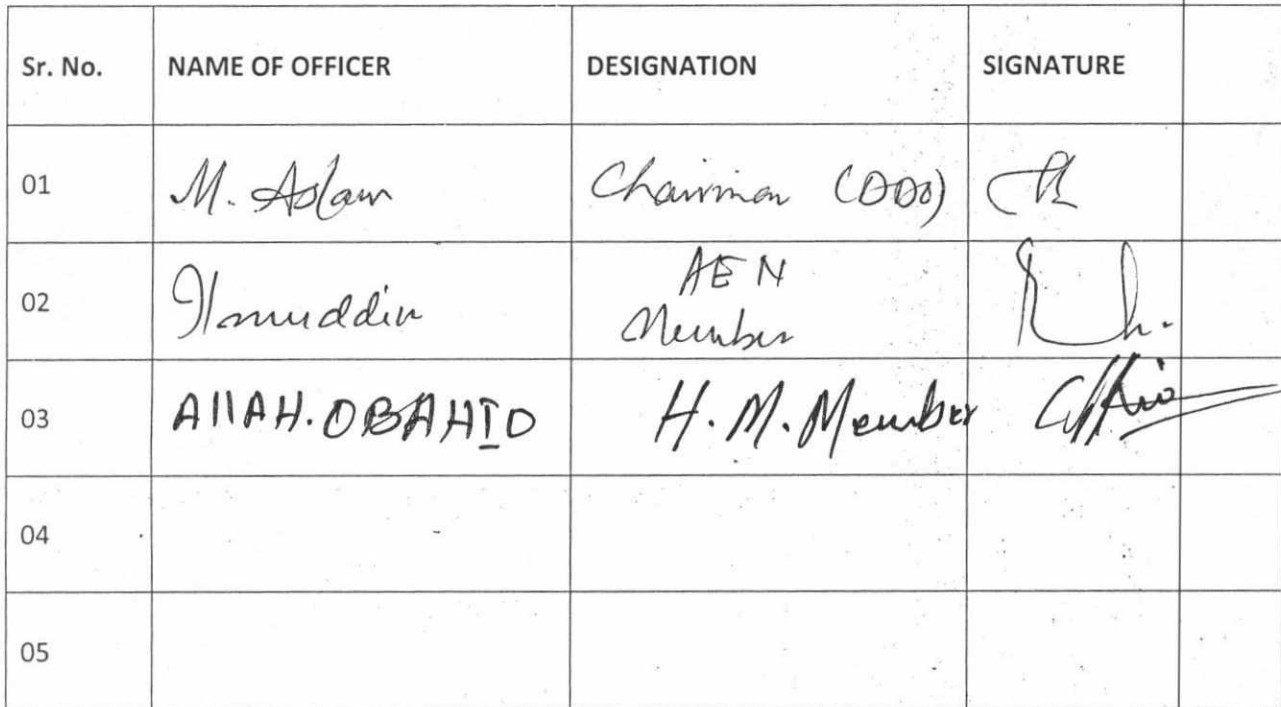 Sr. No. NAME OF OFFICER DESIGNATION SIGNATURE
01 M. Aslam Chairman (DDO)
02 AEN
Member
03 AllAH.OBAHIO H.M.Member
04
05